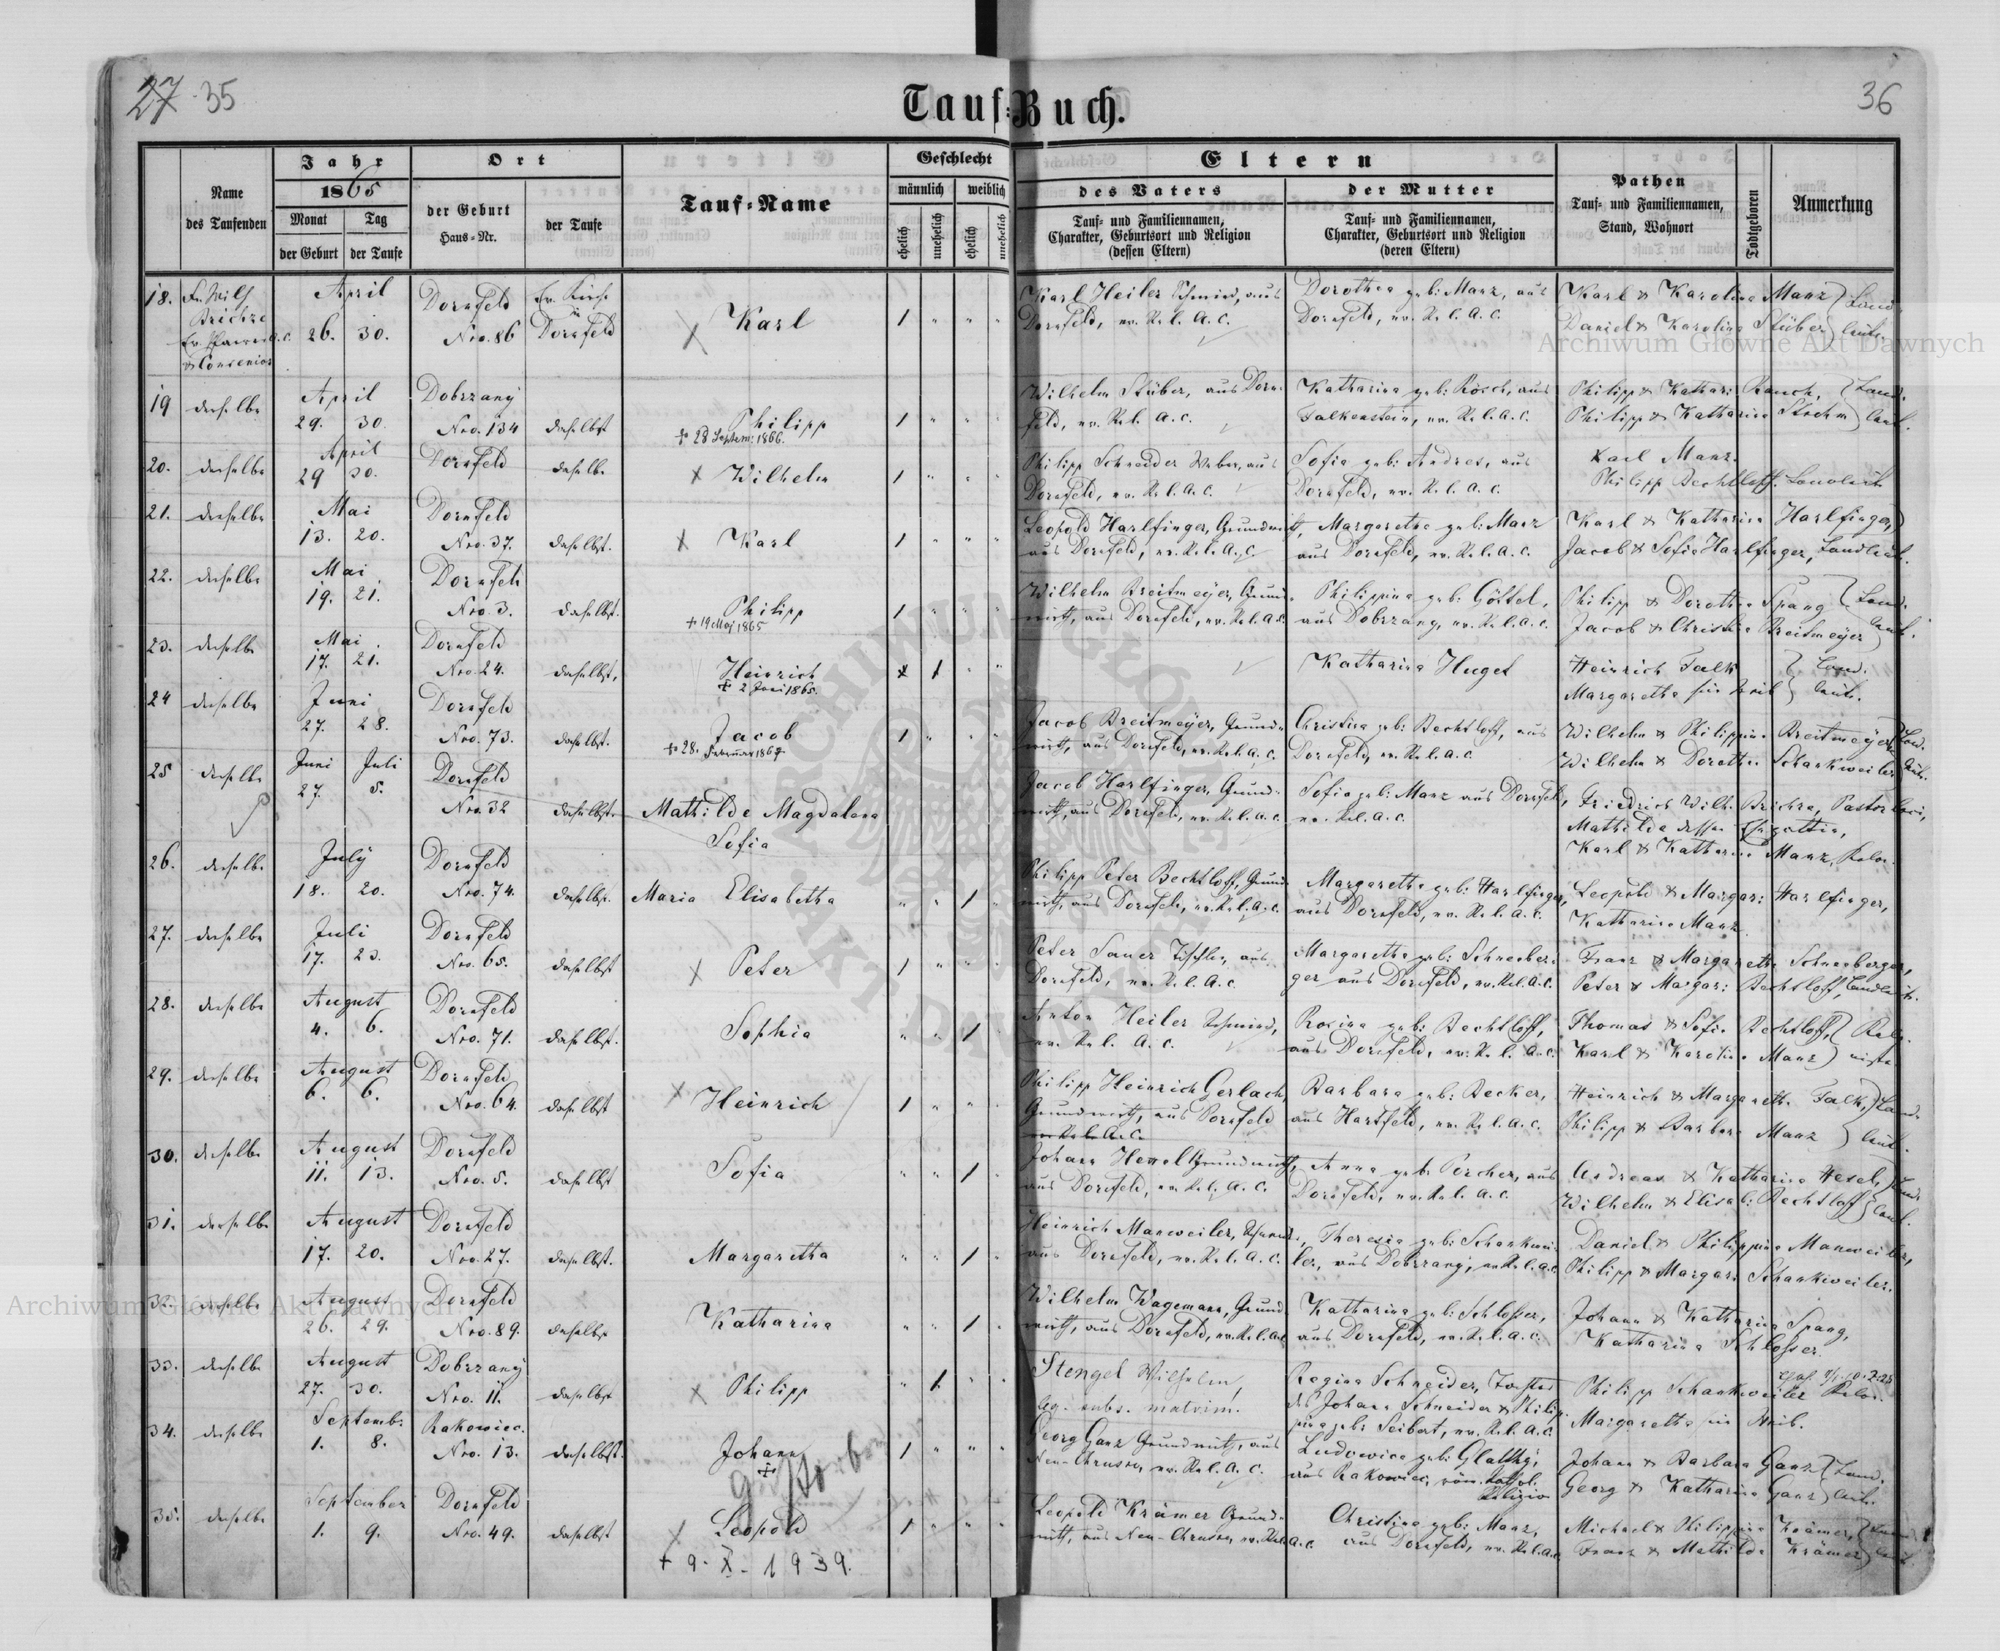 27 35
Tauf-Buch.
36
Name
des Taufenden
Jahr
1865
Monat
der Geburt
Tag
der Taufe
Ort
der Geburt
Haus-Nr.
der Taufe
Tauf-Name
Geschlecht
männlich
weiblich
ehelich
unehelich
ehelich
unehelich
Eltern
des Vaters
Tauf- und Familiennamen,
Charakter, Geburtsort und Religion
(dessen Eltern)
der Mutter
Tauf- und Familiennamen,
Charakter, Geburtsort und Religion
(deren Eltern)
Pathen
Tauf- und Familiennamen,
Stand, Wohnort
Todtgeboren
Anmerkung
18. April 26. 30. Dornfeld Nro. 86 Ev. Kirche Dornfeld Karl 1 Karl Heiler Schmied, aus Dornfeld, ev. Rel. A. C. Dorothea geb: Manz, aus Dornfeld, ev. Rel. A. C. Karl & Karolina Manz Daniel & Karolina Stüber
19 derselbe April 29. 30. Dobrzany Nro. 134 daselbst Philipp
+ 28 Septem: 1866. 1 Wilhelm Stüber, aus Dornfeld, ev. Rel. A. C. Katharina geb: Rösch, aus Falkenstein, ev. Rel. A. C. Philipp & Kathari Rauch, Philipp & Katharina
20. derselbe April 29 30. Dornfeld daselbst Wilhelm 1 Philipp Schneider Weber, aus Dornfeld, ev. Rel. A. C. Sofia geb: Andres, aus Dornfeld, ev. Rel. A. C. Karl Manz. Philipp Bechtloff.
21. derselbe Mai 13. 20. Dornfeld Nro. 37. daselbst. Karl 1 Leopold Harlfinger, Grundwirth, aus Dornfeld, ev. Rel. A. C. Margaretha geb: Manz aus Dornfeld, ev. Rel. A. C. Karl & Katharina Harlfinger, Jacob & Sofia Harlfinger, Landleute.
22. derselbe Mai 19. 21. Dornfeld Nro. 3. daselbst. Philipp
+ 19 Maj 1865 1 Wilhelm Breitmeyer, Grundwirth, aus Dornfeld, ev. Rel. A. C. Philippina geb: Göttel, aus Dobrzany, ev. Rel. A. C. Philipp & Dorothea Spang Jacob & Christina Breitmeyer
23. derselbe Mai 17. 21. Dornfeld Nro. 24. daselbst, Heinrich
+ 2 Juni 1865. 1 Katharina Huget Heinrich Falk Margaretha sein Weib
24 derselbe Juni 27. 28. Dornfeld Nro. 73. daselbst. Jacob
+ 28. Februar 1867 1 Jacob Breitmeyer, Grundwirth, aus Dornfeld, ev. Rel. A. C. Christina geb: Bechtloff, aus Dornfeld, ev. Rel. A. C. Wilhelm & Philippina Breitmeyer Wilhelm & Dorothea Schankweiler
25 derselbe Juni 27. Juli 5. Dornfeld Nro. 32 daselbst. Mathilde Magdalena
Sofia Jacob Harlfinger, Grundwirth, aus Dornfeld, ev. Rel. A. C. Sofia geb: Manz aus Dornfeld, ev. Rel. A. C. Friedrich Wilh. Brichze, Pastor loci, Mathilda dessen Ehegattin, Karl & Katharina Manz,
26. derselbe July 18. 20. Dornfeld Nro. 74. daselbst. Maria Elisabetha 1 Philipp Peter Bechtloff, Grundwirth, aus Dornfeld, ev. Rel. A. C. Margaretha geb: Harlfinger, aus Dornfeld, ev. Rel. A. C. Leopold & Margar: Harlfinger, Katharina Manz
27. derselbe Juli 17. 23. Dornfeld Nro. 65. daselbst Peter 1 Peter Sauer Tischler, aus Dornfeld, ev. Rel. A. C. Margaretha geb: Schneeberger aus Dornfeld, ev. Rel. A. C. Franz & Margaretha Schneeberger, Peter & Margar: Bechtloff, Landleute.
28. derselbe August 4. 6. Dornfeld Nro. 71. daselbst. Sophia 1 Anton Heiler Schmied, ev. Rel. A. C. Rosina geb: Bechtloff, aus Dornfeld, ev. Rel. A. C. Thomas & Sofia Bechtloff, Karl & Karolina Manz
29. derselbe August 6. 6. Dornfeld Nro. 64. daselbst Heinrich 1 Philipp Heinrich Gerlach, Grundwirth, aus Dornfeld ev. Rel. A. C. Barbara geb: Becker, aus Hartfeld, ev. Rel. A. C. Heinrich & Margaretha Falk, Philipp & Barbara Manz
30. derselbe August 11. 13. Dornfeld Nro. 5. daselbst Sofia 1 Johann Grundwirth, aus Dornfeld, ev. Rel. A. C. Anna geb: Porcher, aus Dornfeld, ev. Rel. A. C. Andreas & Katharina Wilhelm & Elisab: Bechtloff
31. derselbe August 17. 20. Dornfeld Nro. 27. daselbst. Margaretha 1 Heinrich Manweiler, aus Dornfeld, ev. Rel. A. C. Theresia geb: Schankweiler, aus Dobrzany, ev. Rel. A. C. Daniel & Philippina Manweiler, Philipp & Margar: Schankweiler.
32. derselbe August 26. 29. Dornfeld Nro. 89. daselbst Katharina 1 Wilhelm Wagemann, Grundwirth, aus Dornfeld, ev. Rel. A. C. Katharina geb: Schlosser, aus Dornfeld, ev. Rel. A. C. Johann & Katharina Spang, Katharina Schlosser.
33. derselbe August 27. 30. Dobrzany Nro. 11. daselbst Philipp 1 Stengel Wilhelm, leg. subs. matrim. Regina Schneider, Tochter des Johann Schneider & Philippina geb: Seibert, ev. Rel. A. C. Philipp Schankweiler Margaretha sein Weib.
34. derselbe Septemb: 1. 8. Rakowiec. Nro. 13. daselbst. Johann
+
gestorben 1 Georg Ganz Grundwirth, aus Neu-Chrusno, ev. Rel. A. C. Ludowica geb: aus Rakowiec, röm. kathol. Religion Johann & Barbara Ganz Georg & Katharina Ganz
35. derselbe September 1. 9. Dornfeld Nro. 49. daselbst Leopold
+ 9. X. 1939. 1 Leopold Krämer Grundwirth, aus Neu-Chrusno, ev. Rel. A. C. Christina geb: Manz, aus Dornfeld, ev. Rel. A. C. Michael & Philippina Krämer, Franz & Mathilda Krämer
Archiwum Główne Akt Dawnych
Archiwum Główne Akt Dawnych